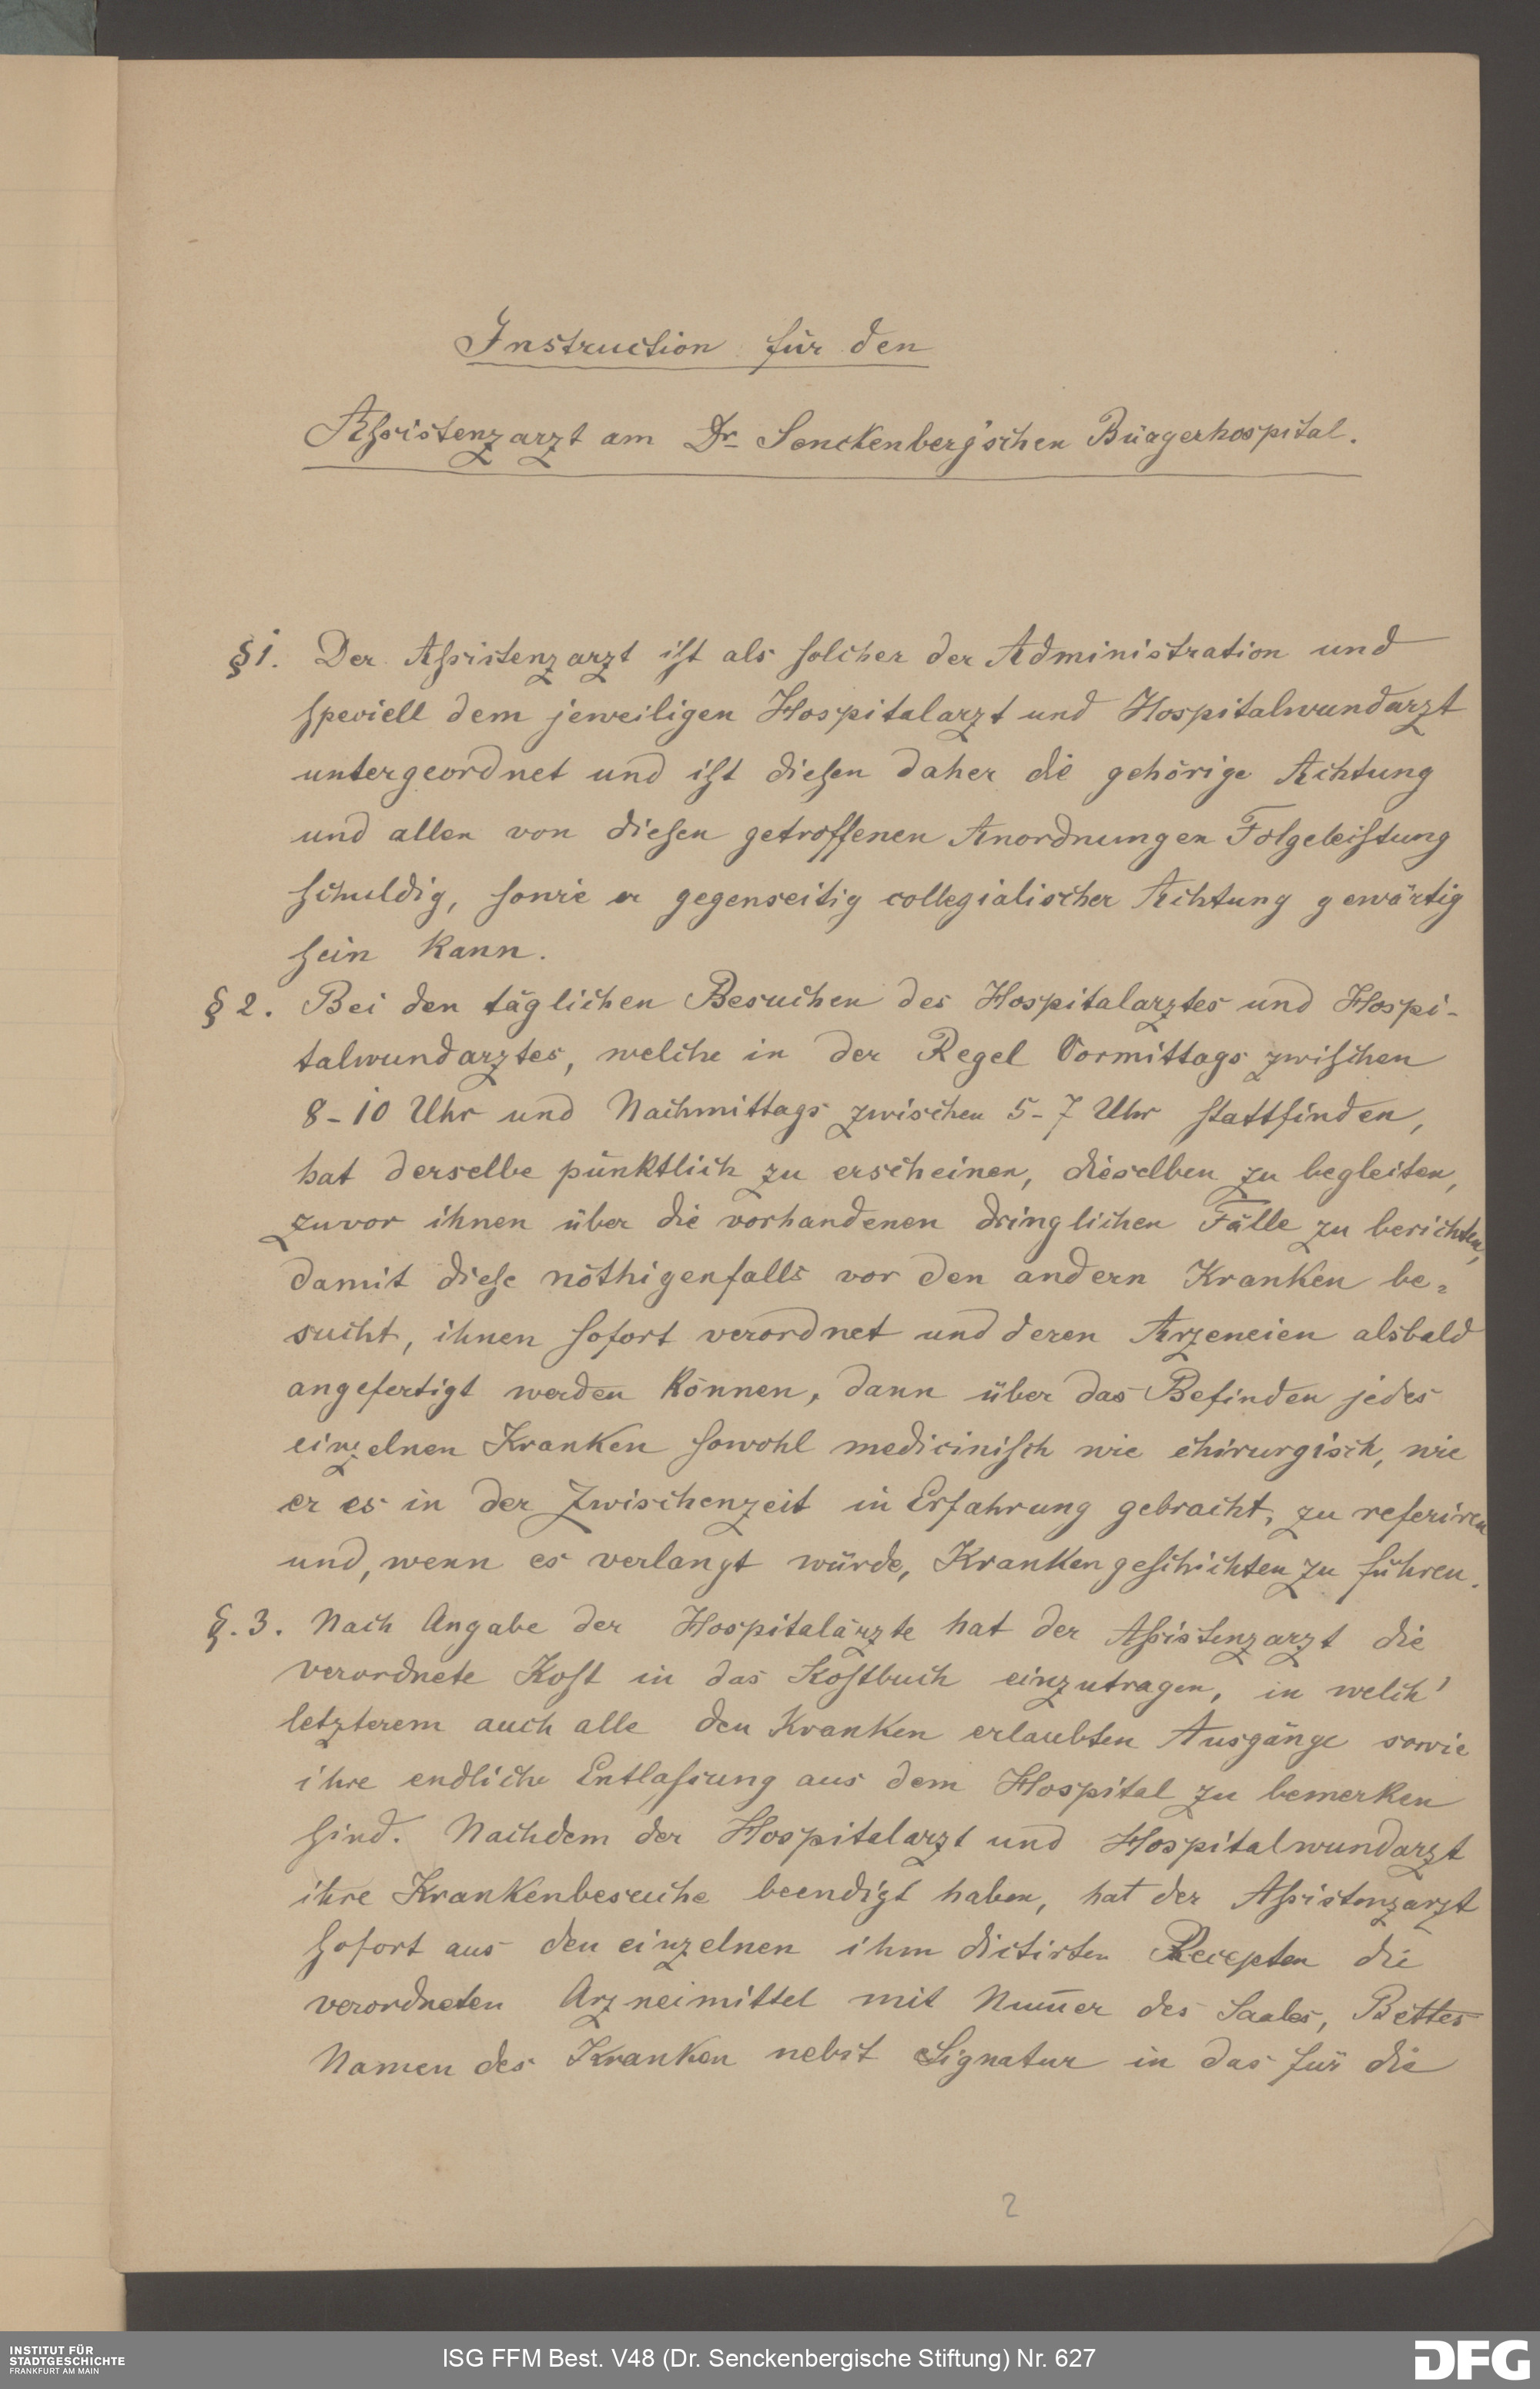 Instruction für den
Assistenzarzt am Dr. Senckenberg'schen Bürgerhospital.
§ 1. Der Assistenzarzt ist als solcher der Administration und
speciell dem jeweiligen Hospitalarzt und Hospitalwundarzt
untergeordnet und ist diesen daher die gehörige Achtung
und allen von diesen getroffenen Anordnungen Folgeleistung
schuldig, sowie er gegenseitig collegialischer Achtung gewärtig
sein kann.
§ 2. Bei den täglichen Besuchen des Hospitalarztes und Hospi-
talwundarztes, welche in der Regel Vormittags zwischen
8-10 Uhr und Nachmittags zwischen 5-7 Uhr stattfinden,
hat derselbe pünktlich zu erscheinen, dieselben zu begleiten,
zuvor ihnen über die vorhandenen dringlichen Fälle zu berichten,
damit diese nöthigenfalls vor den andern Kranken be-
sucht, ihnen sofort verordnet und deren Arzeneien alsbald
angefertigt werden können, dann über das Befinden jedes
einzelnen Kranken sowohl medicinisch wie chirurgisch, wie
er es in der Zwischenzeit in Erfahrung gebracht, zu referiren
und, wenn es verlangt würde, Krankengeschichten zu führen.
§. 3. Nach Angabe der Hospitalärzte hat der Assistenzarzt die
verordnete Kost in das Kostbuch einzutragen, in welch'
letzterem auch alle den Kranken erlaubten Ausgänge sowie
ihre endliche Entlassung aus dem Hospital zu bemerken
sind. Nachdem der Hospitalarzt und Hospitalwundarzt
ihre Krankenbesuche beendigt haben, hat der Assistenzarzt
sofort aus den einzelnen ihm dictirten Recepten die
verordneten Arzneimittel mit Num̄er des Saales, Bettes
Namen des Kranken nebst Signatur in das für die
2
INSTITUT FÜR
STADTGESCHICHTE
FRANKFURT AM MAIN
ISG FFM Best. V48 (Dr. Senckenbergische Stiftung) Nr. 627
DFG